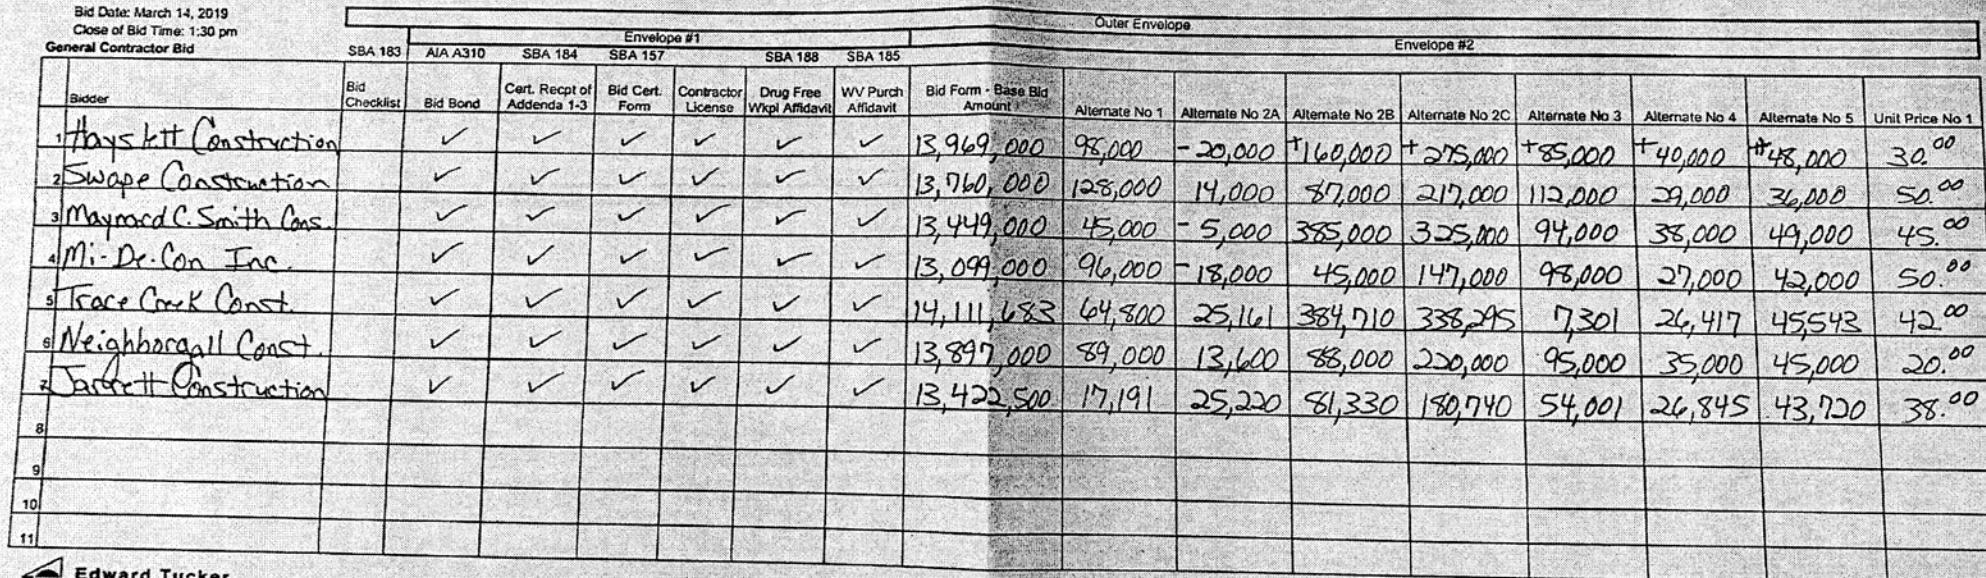 Bid Date: March 14, 2019
Close of Bid Time: 1:30 pm
General Contractor Bid
Outer Envelope
Envelope #1 Envelope #2
SBA 183 AIA A310 SBA 184 SBA 157 SBA 188 SBA 185
Bidder Bid Checklist Bid Bond Cert. Recpt of Addenda 1-3 Bid Cert. Form Contractor License Drug Free Wkpl Affidavit WV Purch Affidavit Bid Form - Base Bid Amount Alternate No 1 Alternate No 2A Alternate No 2B Alternate No 2C Alternate No 3 Alternate No 4 Alternate No 5 Unit Price No 1
1 Hayslett Construction ✓ ✓ ✓ ✓ ✓ ✓ 13,969,000 98,000 -20,000 +160,000 +275,000 +85,000 +40,000 +48,000 30.00
2 Swope Construction ✓ ✓ ✓ ✓ ✓ ✓ 13,760,000 128,000 14,000 87,000 217,000 112,000 29,000 36,000 50.00
3 Maynard C. Smith Cons. ✓ ✓ ✓ ✓ ✓ ✓ 13,449,000 45,000 -5,000 385,000 325,000 94,000 38,000 49,000 45.00
4 Mi-De-Con Inc. ✓ ✓ ✓ ✓ ✓ ✓ 13,099,000 96,000 -18,000 45,000 147,000 98,000 27,000 42,000 50.00
5 Trace Creek Const. ✓ ✓ ✓ ✓ ✓ ✓ 14,111,683 64,800 25,161 384,710 338,295 7,301 26,417 45,543 42.00
6 Neighborgall Const. ✓ ✓ ✓ ✓ ✓ ✓ 13,897,000 89,000 13,600 88,000 220,000 95,000 35,000 45,000 20.00
7 Jarrett Construction ✓ ✓ ✓ ✓ ✓ ✓ 13,422,500 17,191 25,220 81,330 180,740 54,001 26,845 43,720 38.00
8
9
10
11
Edward Tucker